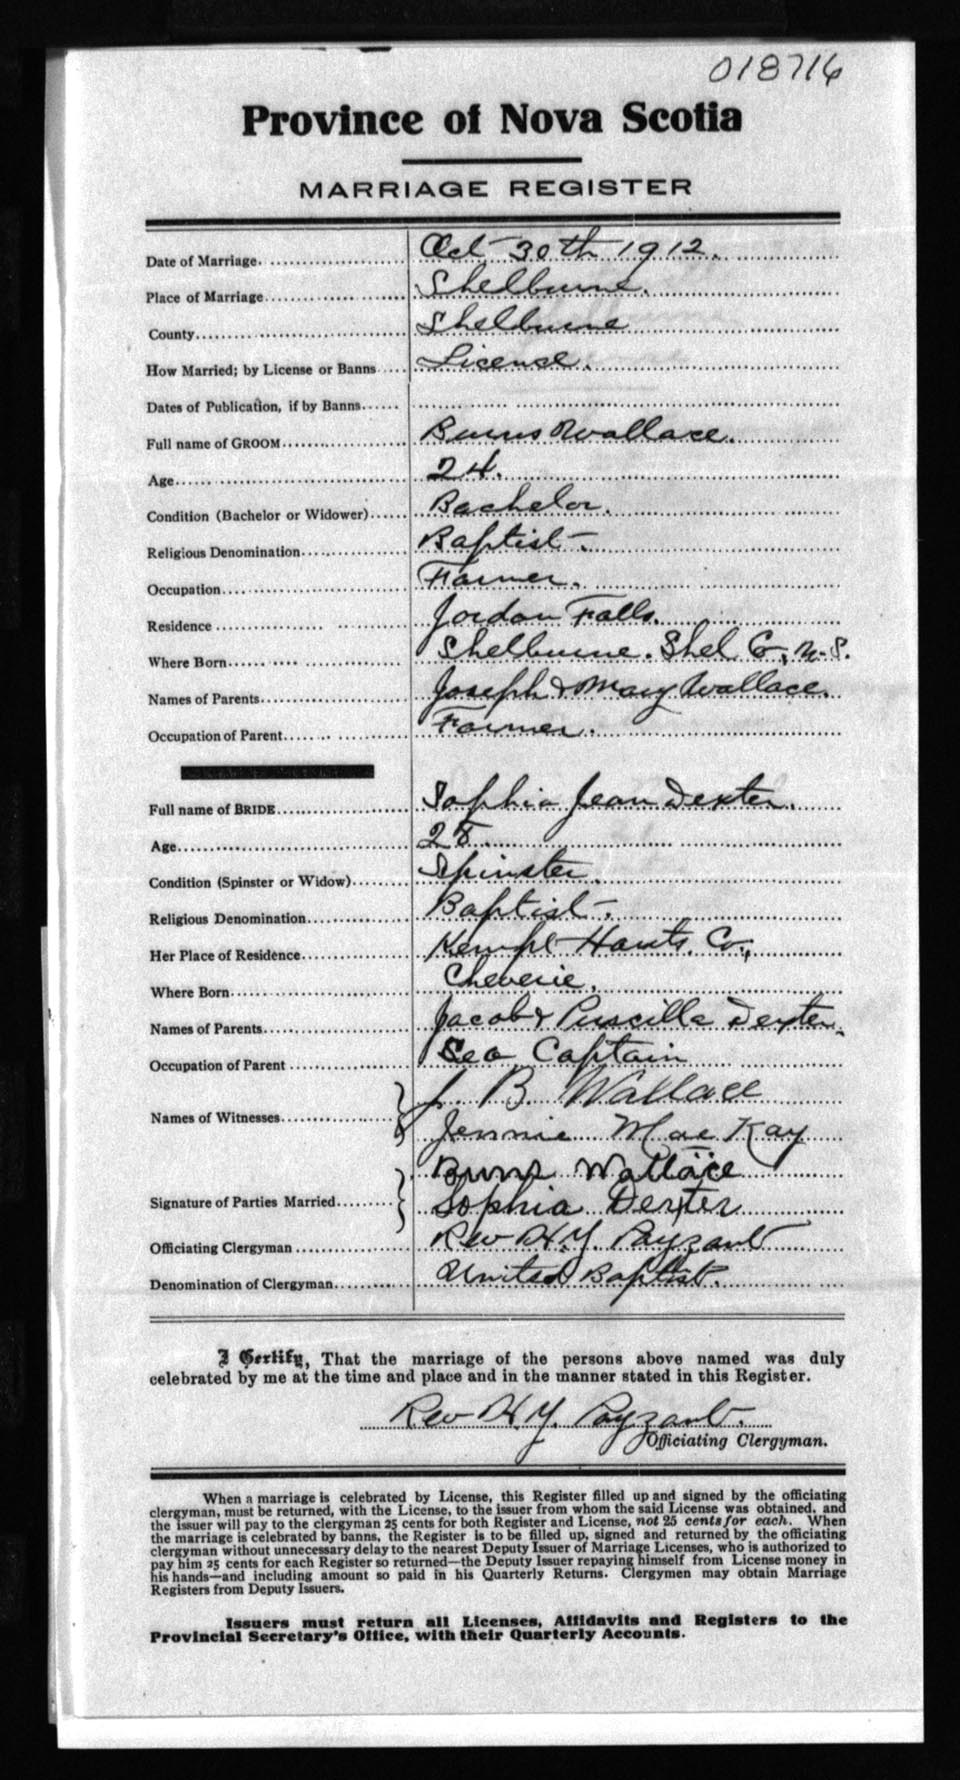 018716
Province of Nova Scotia
MARRIAGE REGISTER
Date of Marriage. Oct 30th 1912.
Place of Marriage Shelburne.
County Shelburne
How Married; by License or Banns License.
Dates of Publication, if by Banns
Full name of GROOM Burns Wallace.
Age 24.
Condition (Bachelor or Widower) Bachelor.
Religious Denomination Baptist.
Occupation Farmer.
Residence Jordan Falls.
Where Born Shelburne. Shel Co, N.S.
Names of Parents Joseph & Mary Wallace.
Occupation of Parent Farmer.
Full name of BRIDE Sophia Jean Dexter.
Age 28.
Condition (Spinster or Widow) Spinster.
Religious Denomination Baptist.
Her Place of Residence Kempt Hants. Co.,
Where Born Cheverie.
Names of Parents Jacob & Priscilla Dexter.
Occupation of Parent Sea Captain
J. B. Wallace
Names of Witnesses
Jennie Mac Kay
Burns Wallace
Signature of Parties Married Sophia Dexter
Officiating Clergyman Rev H.Y. Payzant
Denomination of Clergyman United Baptist.
I Certify, That the marriage of the persons above named was duly
celebrated by me at the time and place and in the manner stated in this Register.
Rev H.Y. Payzant.
Officiating Clergyman.
When a marriage is celebrated by License, this Register filled up and signed by the officiating
clergyman, must be returned, with the License, to the issuer from whom the said License was obtained, and
the issuer will pay to the clergyman 25 cents for both Register and License, not 25 cents for each. When
the marriage is celebrated by banns, the Register is to be filled up, signed and returned by the officiating
clergyman without unnecessary delay to the nearest Deputy Issuer of Marriage Licenses, who is authorized to
pay him 25 cents for each Register so returned—the Deputy Issuer repaying himself from License money in
his hands—and including amount so paid in his Quarterly Returns. Clergymen may obtain Marriage
Registers from Deputy Issuers.
Issuers must return all Licenses, Affidavits and Registers to the
Provincial Secretary's Office, with their Quarterly Accounts.